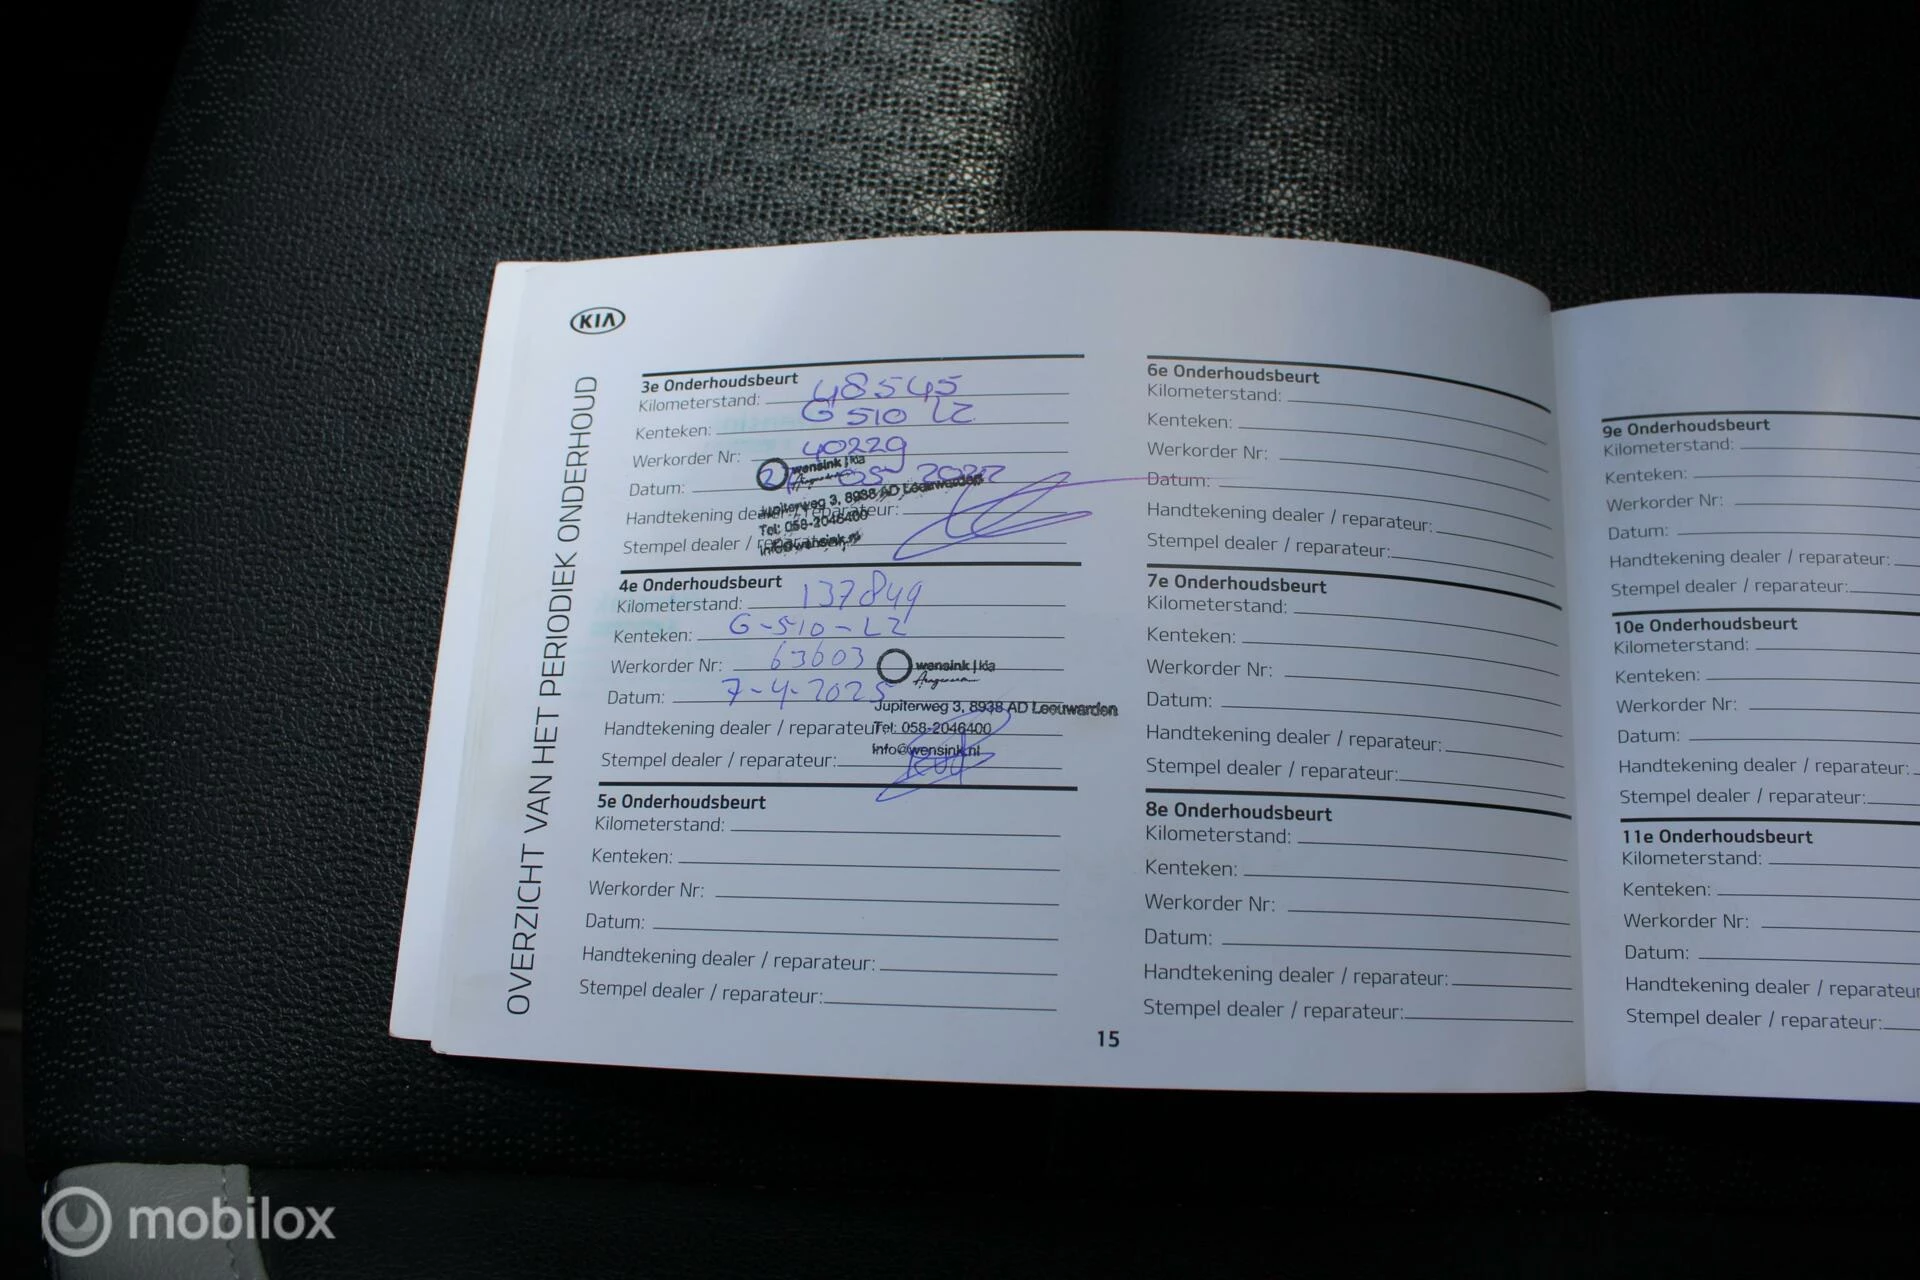 KIA
OVERZICHT VAN HET PERIODIEK ONDERHOUD
3e Onderhoudsbeurt
Kilometerstand: 48545
Kenteken: G 510 LZ
Werkorder Nr: 40229
Datum: 05 2022
wensink | kia
Jupiterweg 3, 8938 AD Leeuwarden
Handtekening dealer / reparateur:
Tel: 058-2046400
Stempel dealer / reparateur:
info@wensink.nl
4e Onderhoudsbeurt
Kilometerstand: 137849
Kenteken: G-510-LZ
Werkorder Nr: 63603
wensink | kia
Datum: 7-4-2025
Jupiterweg 3, 8938 AD Leeuwarden
Handtekening dealer / reparateur:
Tel: 058-2046400
Stempel dealer / reparateur:
info@wensink.nl
5e Onderhoudsbeurt
Kilometerstand:
Kenteken:
Werkorder Nr:
Datum:
Handtekening dealer / reparateur:
Stempel dealer / reparateur:
6e Onderhoudsbeurt
Kilometerstand:
Kenteken:
Werkorder Nr:
Datum:
Handtekening dealer / reparateur:
Stempel dealer / reparateur:
7e Onderhoudsbeurt
Kilometerstand:
Kenteken:
Werkorder Nr:
Datum:
Handtekening dealer / reparateur:
Stempel dealer / reparateur:
8e Onderhoudsbeurt
Kilometerstand:
Kenteken:
Werkorder Nr:
Datum:
Handtekening dealer / reparateur:
Stempel dealer / reparateur:
15
9e Onderhoudsbeurt
Kilometerstand:
Kenteken:
Werkorder Nr:
Datum:
Handtekening dealer / reparateur:
Stempel dealer / reparateur:
10e Onderhoudsbeurt
Kilometerstand:
Kenteken:
Werkorder Nr:
Datum:
Handtekening dealer / reparateur:
Stempel dealer / reparateur:
11e Onderhoudsbeurt
Kilometerstand:
Kenteken:
Werkorder Nr:
Datum:
Handtekening dealer / reparateur
Stempel dealer / reparateur:
mobilox